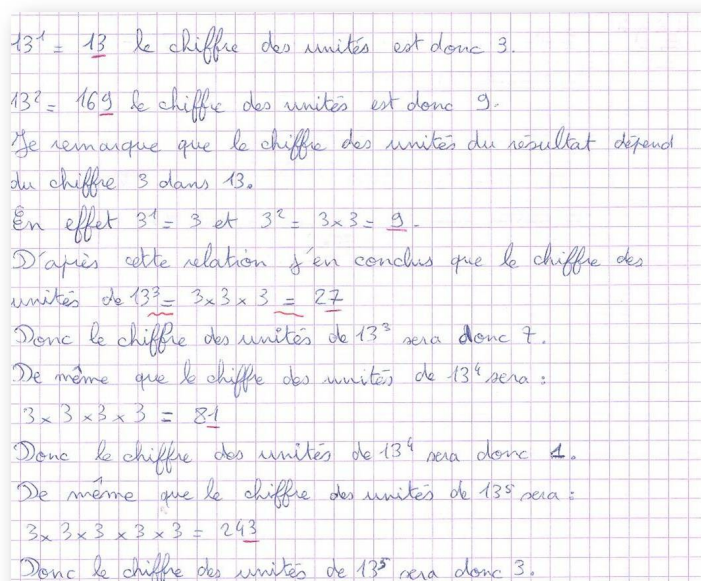 13¹ = 13 le chiffre des unités est donc 3.
13² = 169 le chiffre des unités est donc 9.
Je remarque que le chiffre des unités du résultat dépend
du chiffre 3 dans 13.
En effet 3¹ = 3 et 3² = 3×3 = 9.
D'après cette relation j'en conclus que le chiffre des
unités de 13³ = 3×3×3 = 27
Donc le chiffre des unités de 13³ sera donc 7.
De même que le chiffre des unités de 13⁴ sera :
3×3×3×3 = 81
Donc le chiffre des unités de 13⁴ sera donc 1.
De même que le chiffre des unités de 13⁵ sera :
3×3×3×3×3 = 243
Donc le chiffre des unités de 13⁵ sera donc 3.